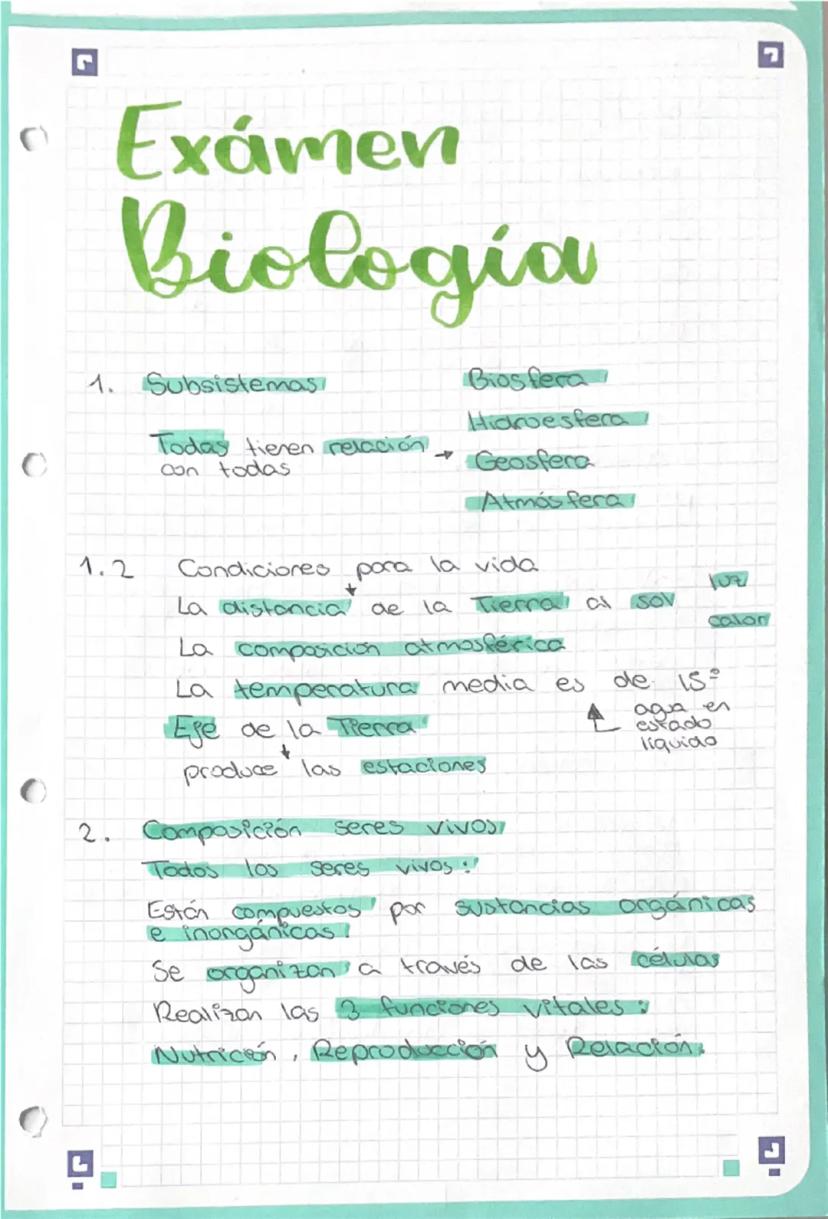 Exámen
Biología
1. Subsistemas
Todas tienen relación →
con todas
Biosfera
Hidroesfera
Geosfera
Atmósfera
1.2 Condiciones para la vida
La distancia de la Tierra al sol
luz
calor
La composición atmosférica
La temperatura media es de 15º
agua en
estado
líquido
Eje de la Tierra
produce las estaciones
2. Composición seres vivos
Todos los seres vivos:
Están compuestos por sustancias orgánicas
e inorgánicas.
Se organizan a través de las células
Realizan las 3 funciones vitales:
Nutrición, Reproducción y Relación.